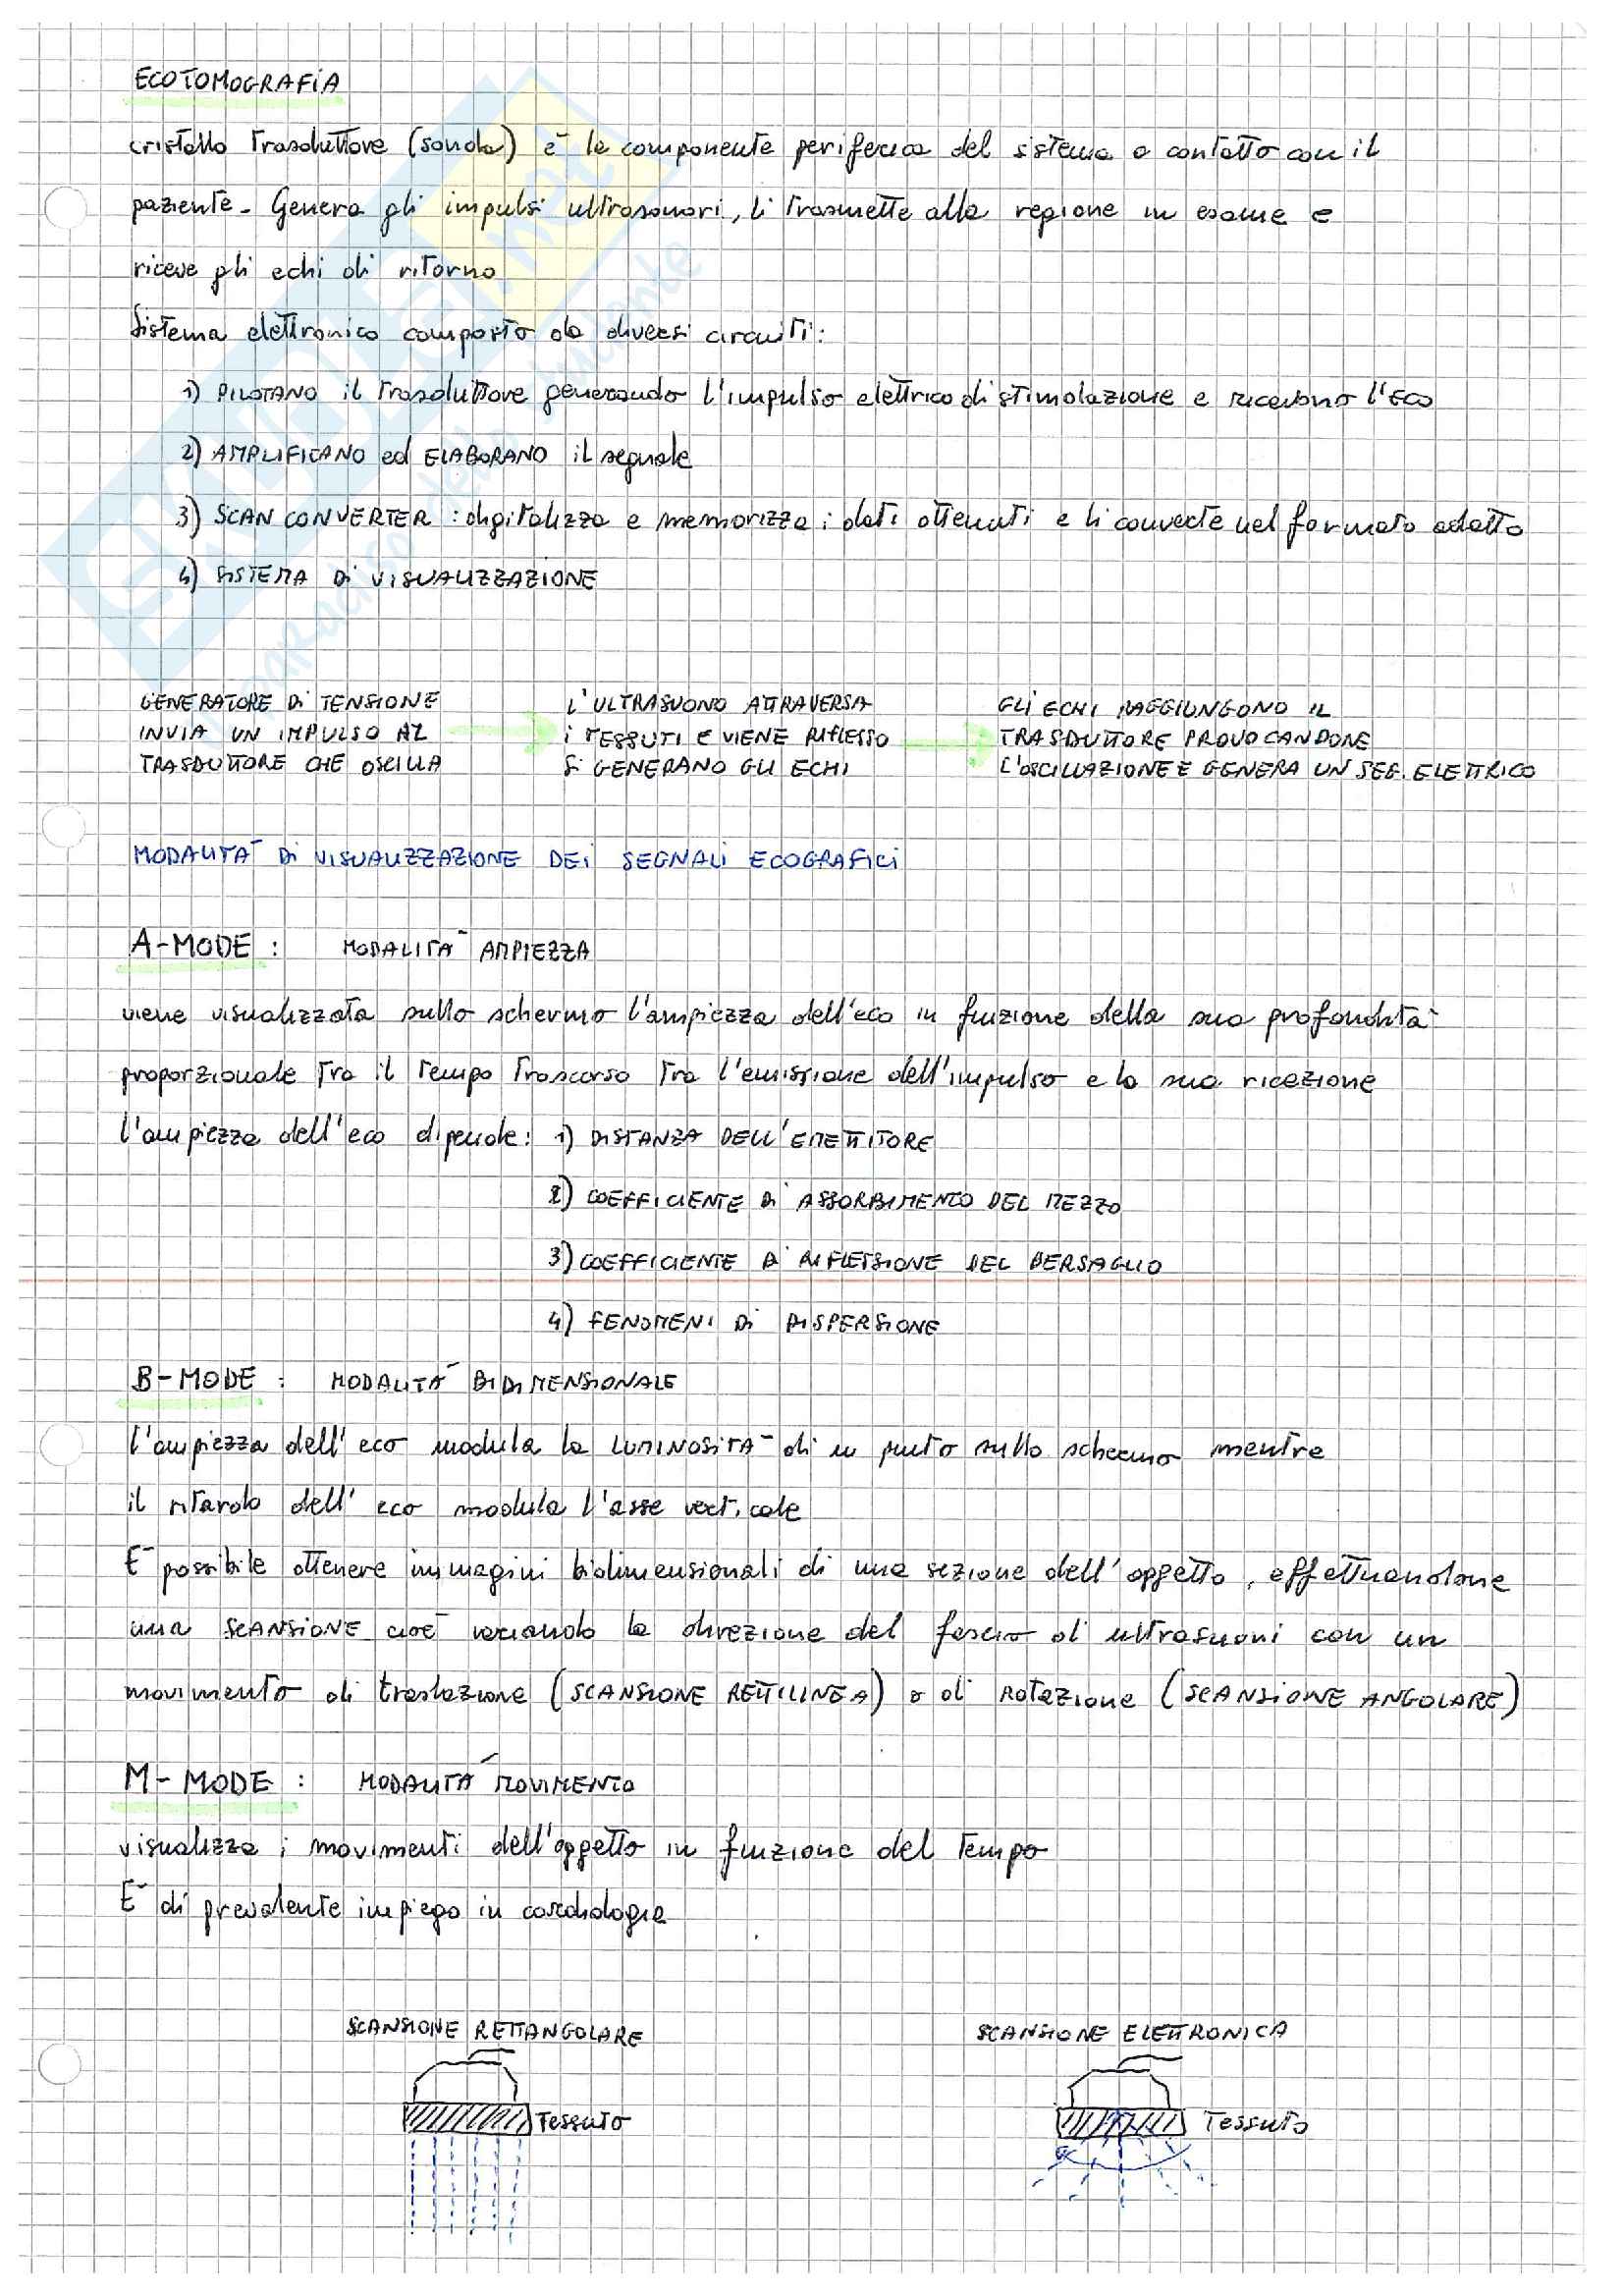 ECOTOMOGRAFIA
cristallo trasduttore (sonda) è la componente periferica del sistema a contatto con il
paziente - Genera gli impulsi ultrasonori, li trasmette alla regione in esame e
riceve gli echi di ritorno
Sistema elettronico composto da diversi circuiti:
1) PILOTANO il trasduttore generando l'impulso elettrico di stimolazione e ricevono l'Eco
2) AMPLIFICANO ed ELABORANO il segnale
3) SCAN CONVERTER : digitalizza e memorizza i dati ottenuti e li converte nel formato adatto
4) SISTEMA DI VISUALIZZAZIONE
GENERATORE DI TENSIONE
INVIA UN IMPULSO AL
TRASDUTTORE CHE OSCILLA
L'ULTRASUONO ATTRAVERSA
I TESSUTI E VIENE RIFLESSO
SI GENERANO GLI ECHI
GLI ECHI RAGGIUNGONO IL
TRASDUTTORE PROVOCANDONE
L'OSCILLAZIONE E GENERA UN SEG. ELETTRICO
MODALITÀ DI VISUALIZZAZIONE DEI SEGNALI ECOGRAFICI
A-MODE : MODALITÀ AMPIEZZA
viene visualizzata sullo schermo l'ampiezza dell'eco in funzione della sua profondità
proporzionale tra il tempo trascorso tra l'emissione dell'impulso e la sua ricezione
l'ampiezza dell'eco dipende: 1) DISTANZA DELL'EMETTITORE
2) COEFFICIENTE DI ASSORBIMENTO DEL MEZZO
3) COEFFICIENTE DI RIFLESSIONE DEL BERSAGLIO
4) FENOMENI DI DISPERSIONE
B-MODE : MODALITÀ BIDIMENSIONALE
l'ampiezza dell'eco modula la LUMINOSITÀ di un punto sullo schermo mentre
il ritardo dell'eco modula l'asse verticale
È possibile ottenere immagini bidimensionali di una sezione dell'oggetto, effettuandone
una SCANSIONE cioè variando la direzione del fascio di ultrasuoni con un
movimento di traslazione (SCANSIONE RETTILINEA) o di Rotazione (SCANSIONE ANGOLARE)
M-MODE : MODALITÀ MOVIMENTO
visualizza i movimenti dell'oggetto in funzione del tempo
È di prevalente impiego in cardiologia
SCANSIONE RETTANGOLARE
Tessuto
SCANSIONE ELETTRONICA
Tessuto